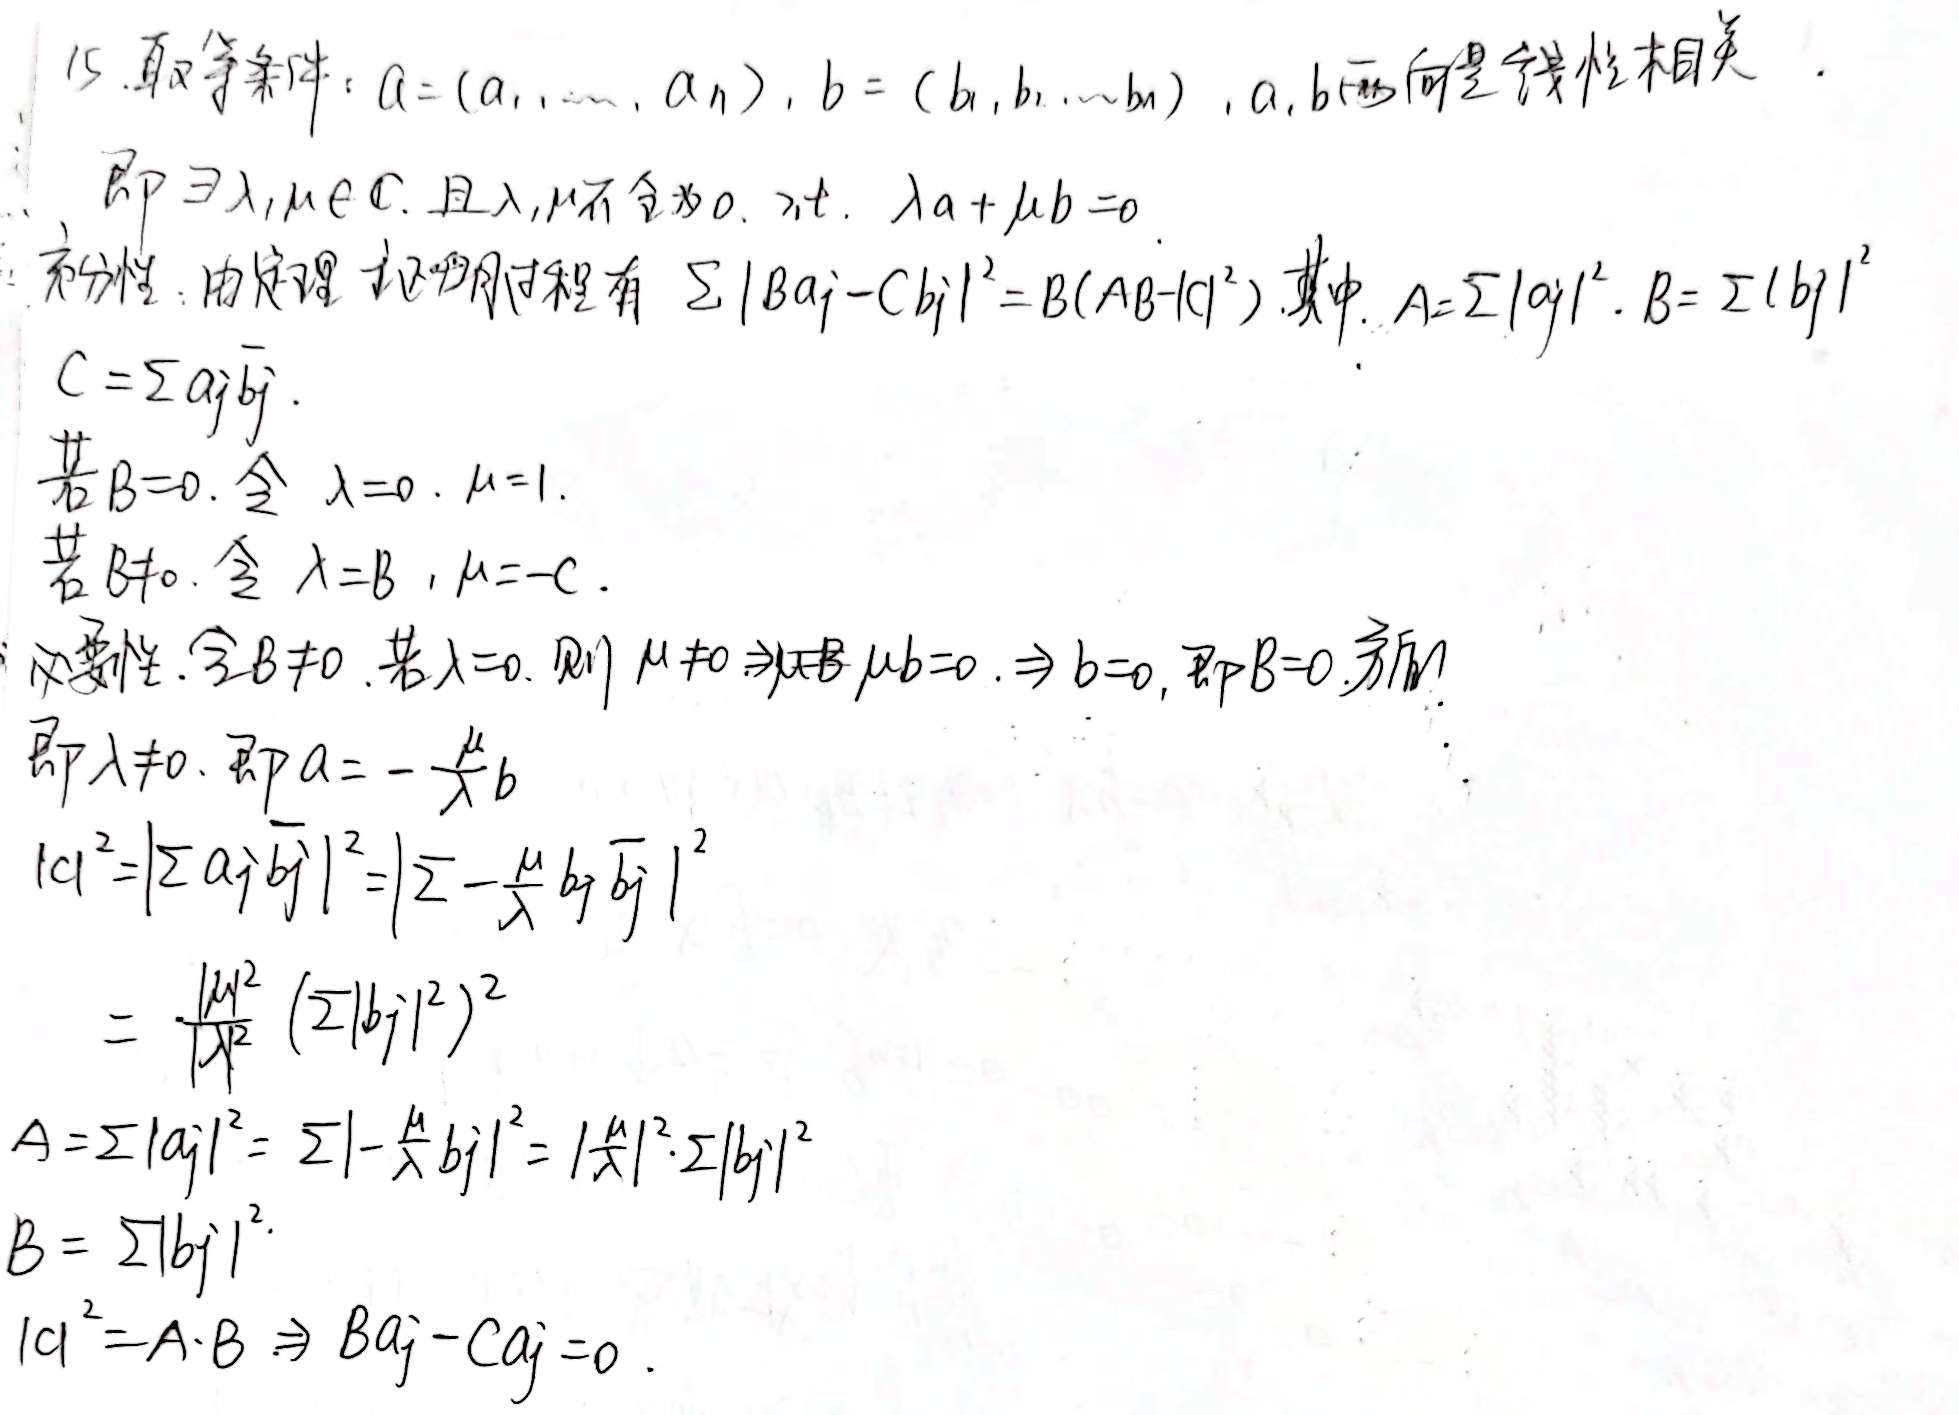 15.取等条件: a=(a₁,……,aₙ), b=(b₁,b₂…bₙ),a,b两向量线性相关.
即∃λ,μ∈ℂ.且λ,μ不全为0. s.t. λa+μb=0.
充分性:由定理证明过程有 Σ|Baj-Cbj|²=B(AB-|C|²).其中. A=Σ|aj|². B=Σ|bj|²
C=Σaj\overline{bj}.
若B=0.令 λ=0. μ=1.
若B≠0.令 λ=B,μ=-C.
必要性.令B≠0.若λ=0.则μ≠0⇒μb=0.⇒b=0,即B=0.矛盾!
即λ≠0.即a=-\frac{μ}{λ}b
|C|²=|Σaj\overline{bj}|²=|Σ-\frac{μ}{λ}bj\overline{bj}|²
=\frac{|μ|²}{|λ|²}(Σ|bj|²)²
A=Σ|aj|²=Σ|-\frac{μ}{λ}bj|²=|\frac{μ}{λ}|²·Σ|bj|²
B=Σ|bj|².
|C|²=A·B⇒Baj-Caj=0.